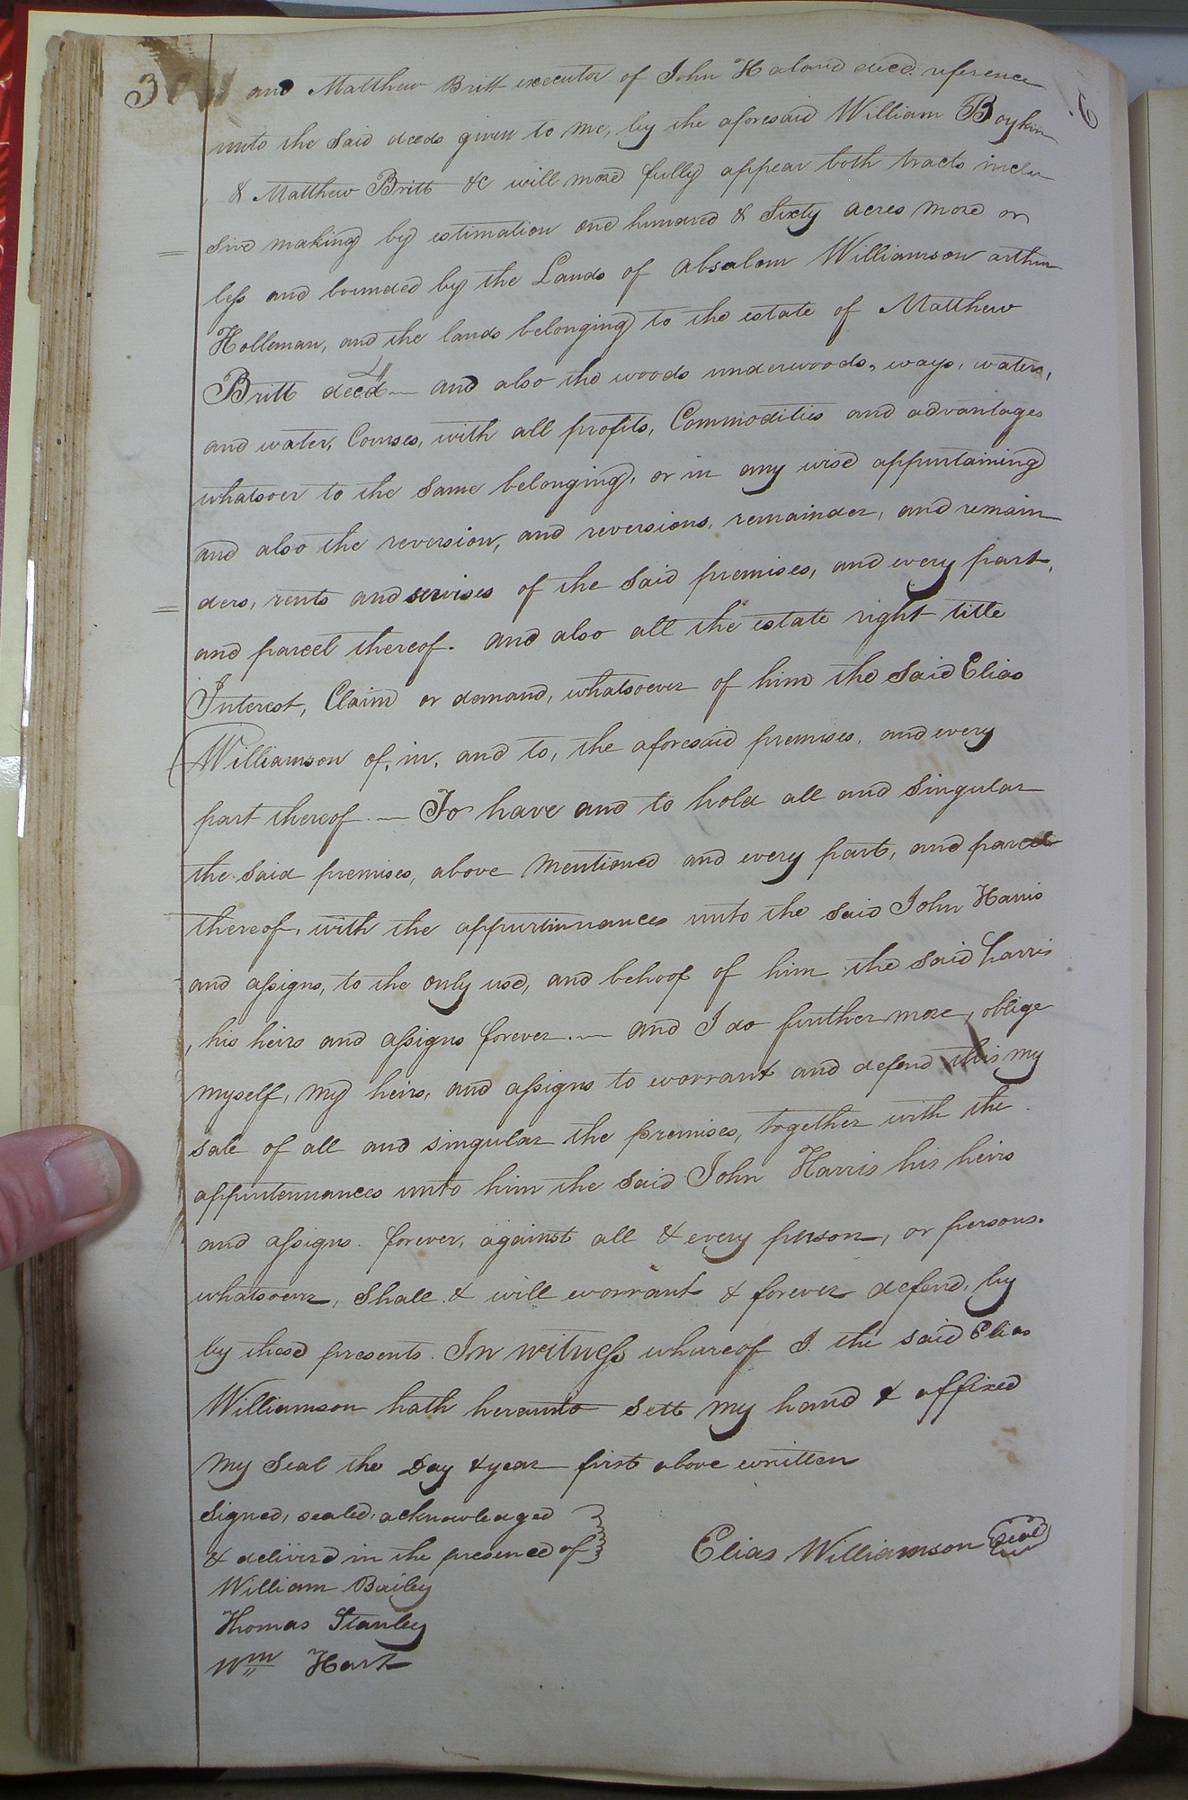 and Matthew Britt executor of John Haland deced. reference
unto the Said deeds given to me, by the aforesaid William Boykin
& Matthew Britt &c will more fully appear both tracts inclu-
sive making by estimation one hundred & Sixty acres more or
less and bounded by the Lands of Absalom Williamson arthur
Holleman, and the lands belonging to the estate of Matthew
Britt deced — and also the woods underwoods, ways, waters,
and water, Courses, with all profits, Commodities and advantages
whatsoever to the Same belonging, or in any wise appurtaining
and also the reversion, and reversions, remainder, and remain
ders, rents and servises of the Said premises, and every part,
and parcel thereof. and also all the estate right title
Interest, Claim or demand, whatsoever of him the Said Elias
Williamson of, in, and to, the aforesaid premises, and every
part thereof. — To have and to hold all and Singular
the Said premises, above mentioned and every part, and parcel
thereof, with the appurtinnances unto the Said John Harris
and assigns, to the only use, and behoof of him the Said harris
, his heirs and assigns forever. — and I do further more, oblige
myself, my heirs, and assigns to warrant and defend this my
sale of all and singular the premises, together with the
appurtennances unto him the Said John Harris his heirs
and assigns. forever, against all & every person, or persons.
whatsoever, Shall & will warrant & forever defend, by
by these presents. In witness whareof I the said Elias
Williamson hath hereunto Sett my hand & affixed
my Seal the Day & year first above written
Signed, sealed, acknowledged
& deliver'd in the presence of
Elias Williamson Seal
William Bailey
Thomas Stanley
Wm Hart